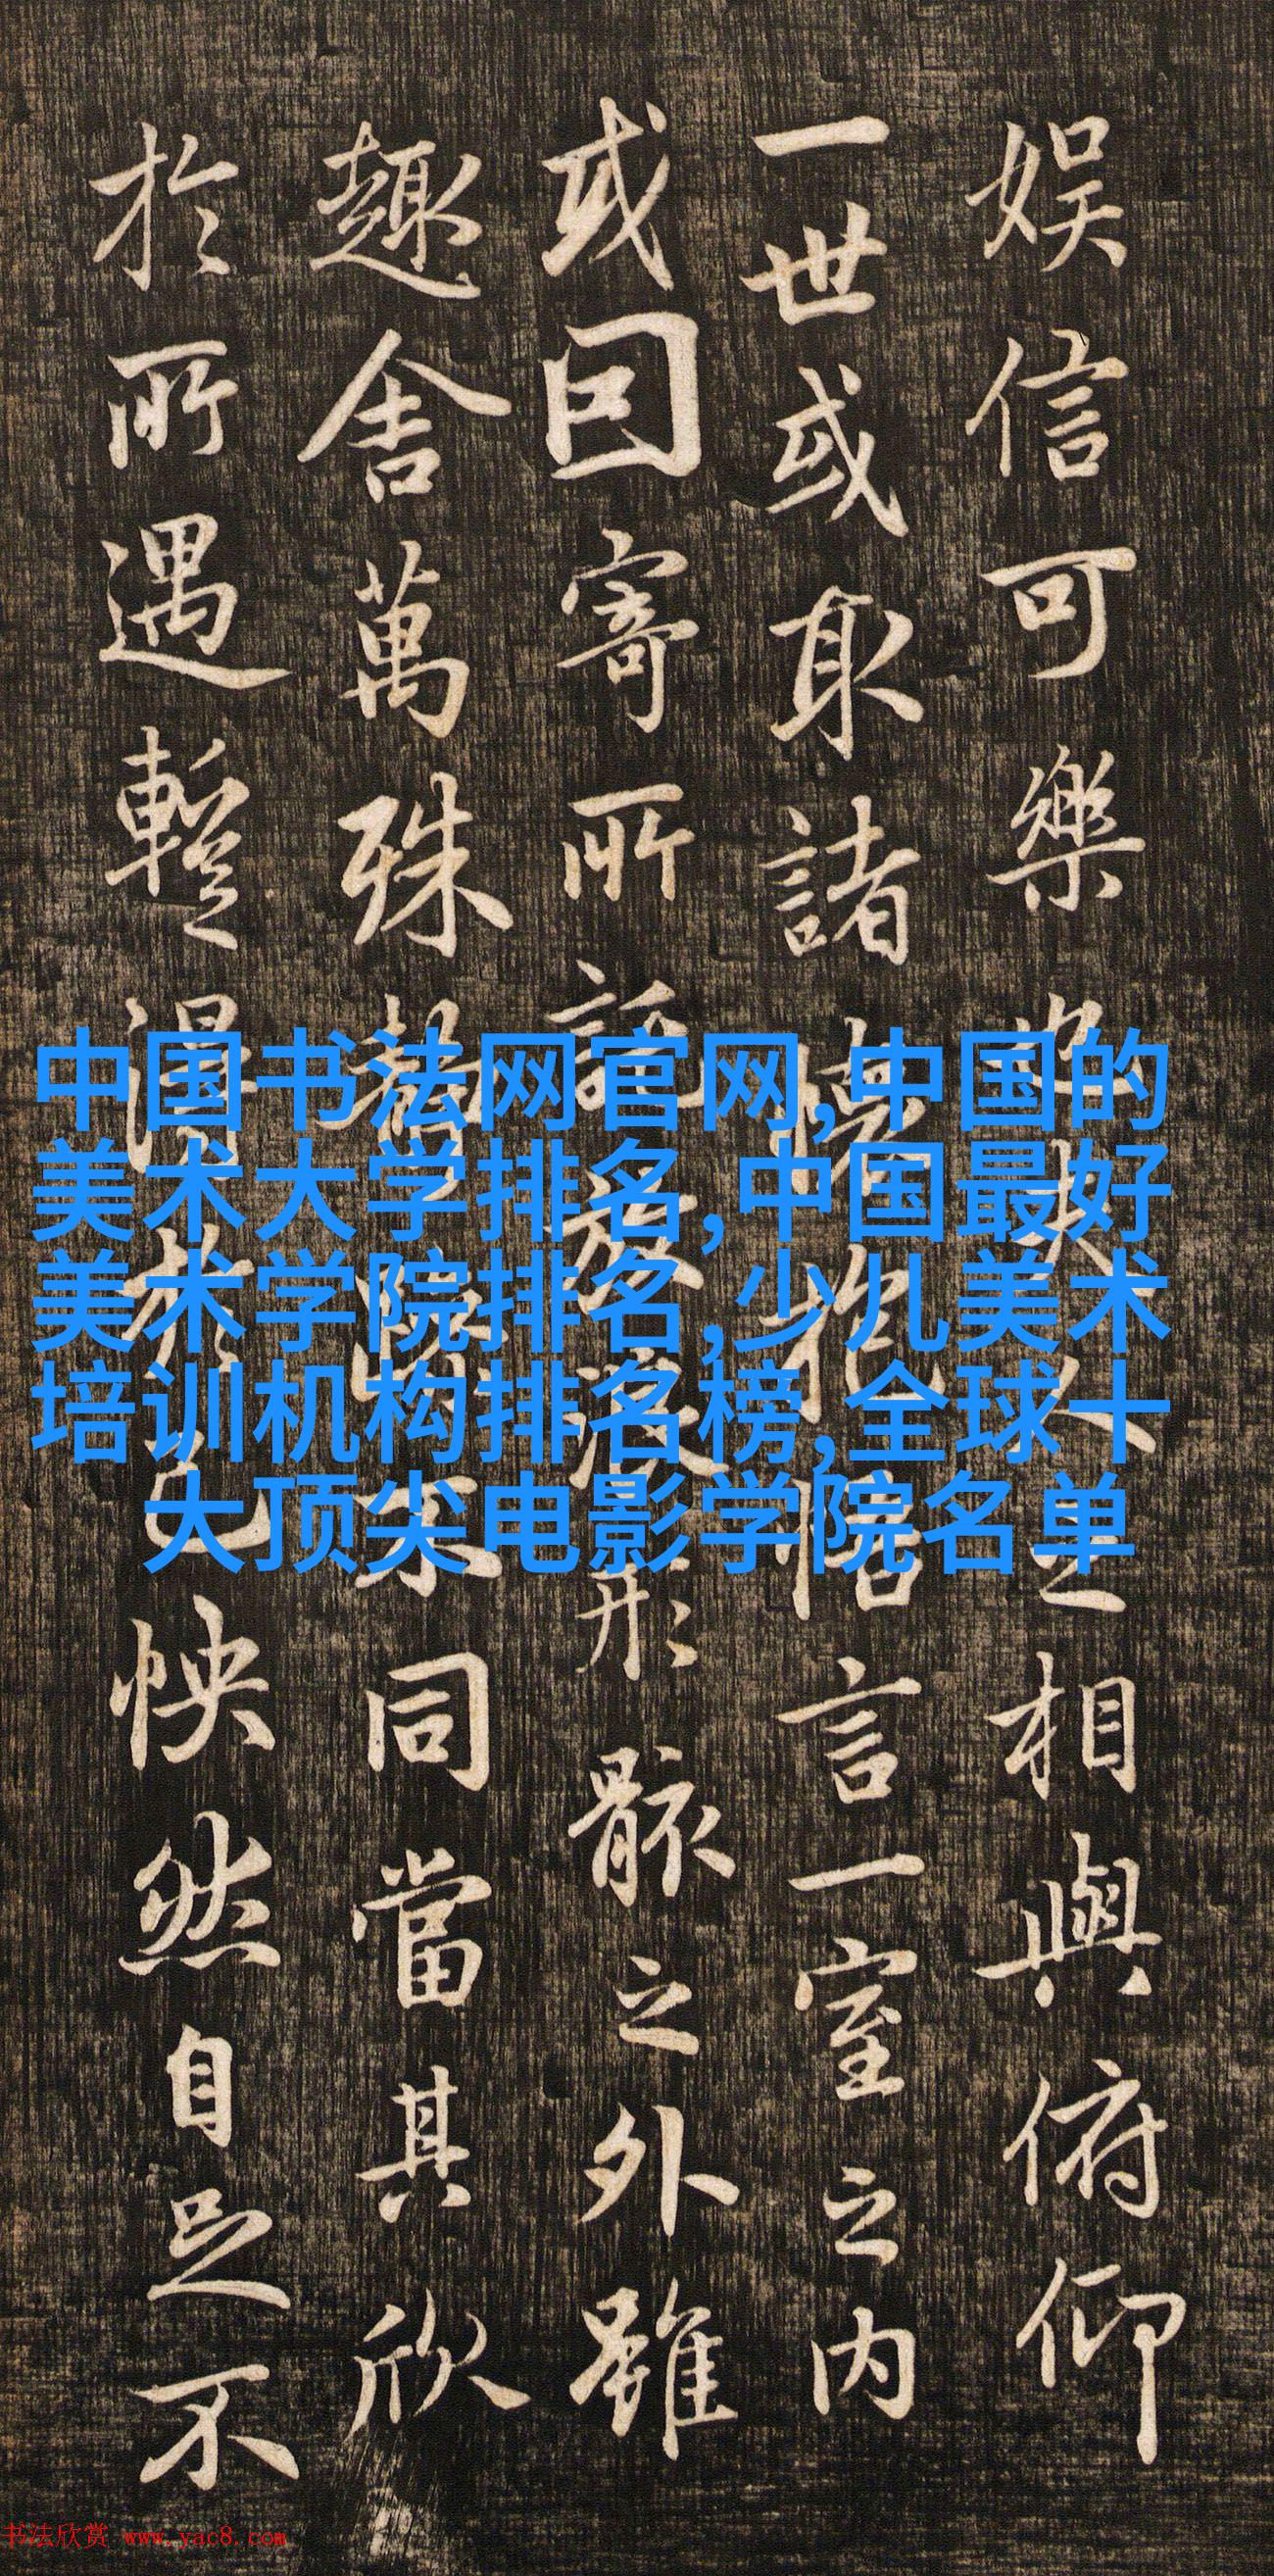 娛信可樂也夫人之相與俯仰
一世或取諸懷抱悟言一室之內
或因寄所託放浪形骸之外雖
趣舍萬殊靜躁不同當其欣
於所遇蹔得於己怏然自足不
中国书法网官网,中国的
美术大学排名,中国最好
美术学院排名,少儿美术
培训机构排名榜,全球十
大顶尖电影学院名单
书法欣赏 www.yac8.com